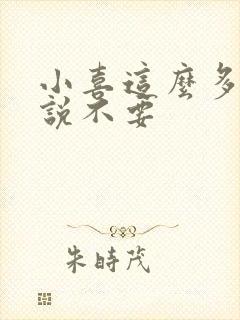 小喜這麼多
說不要
朱時茂